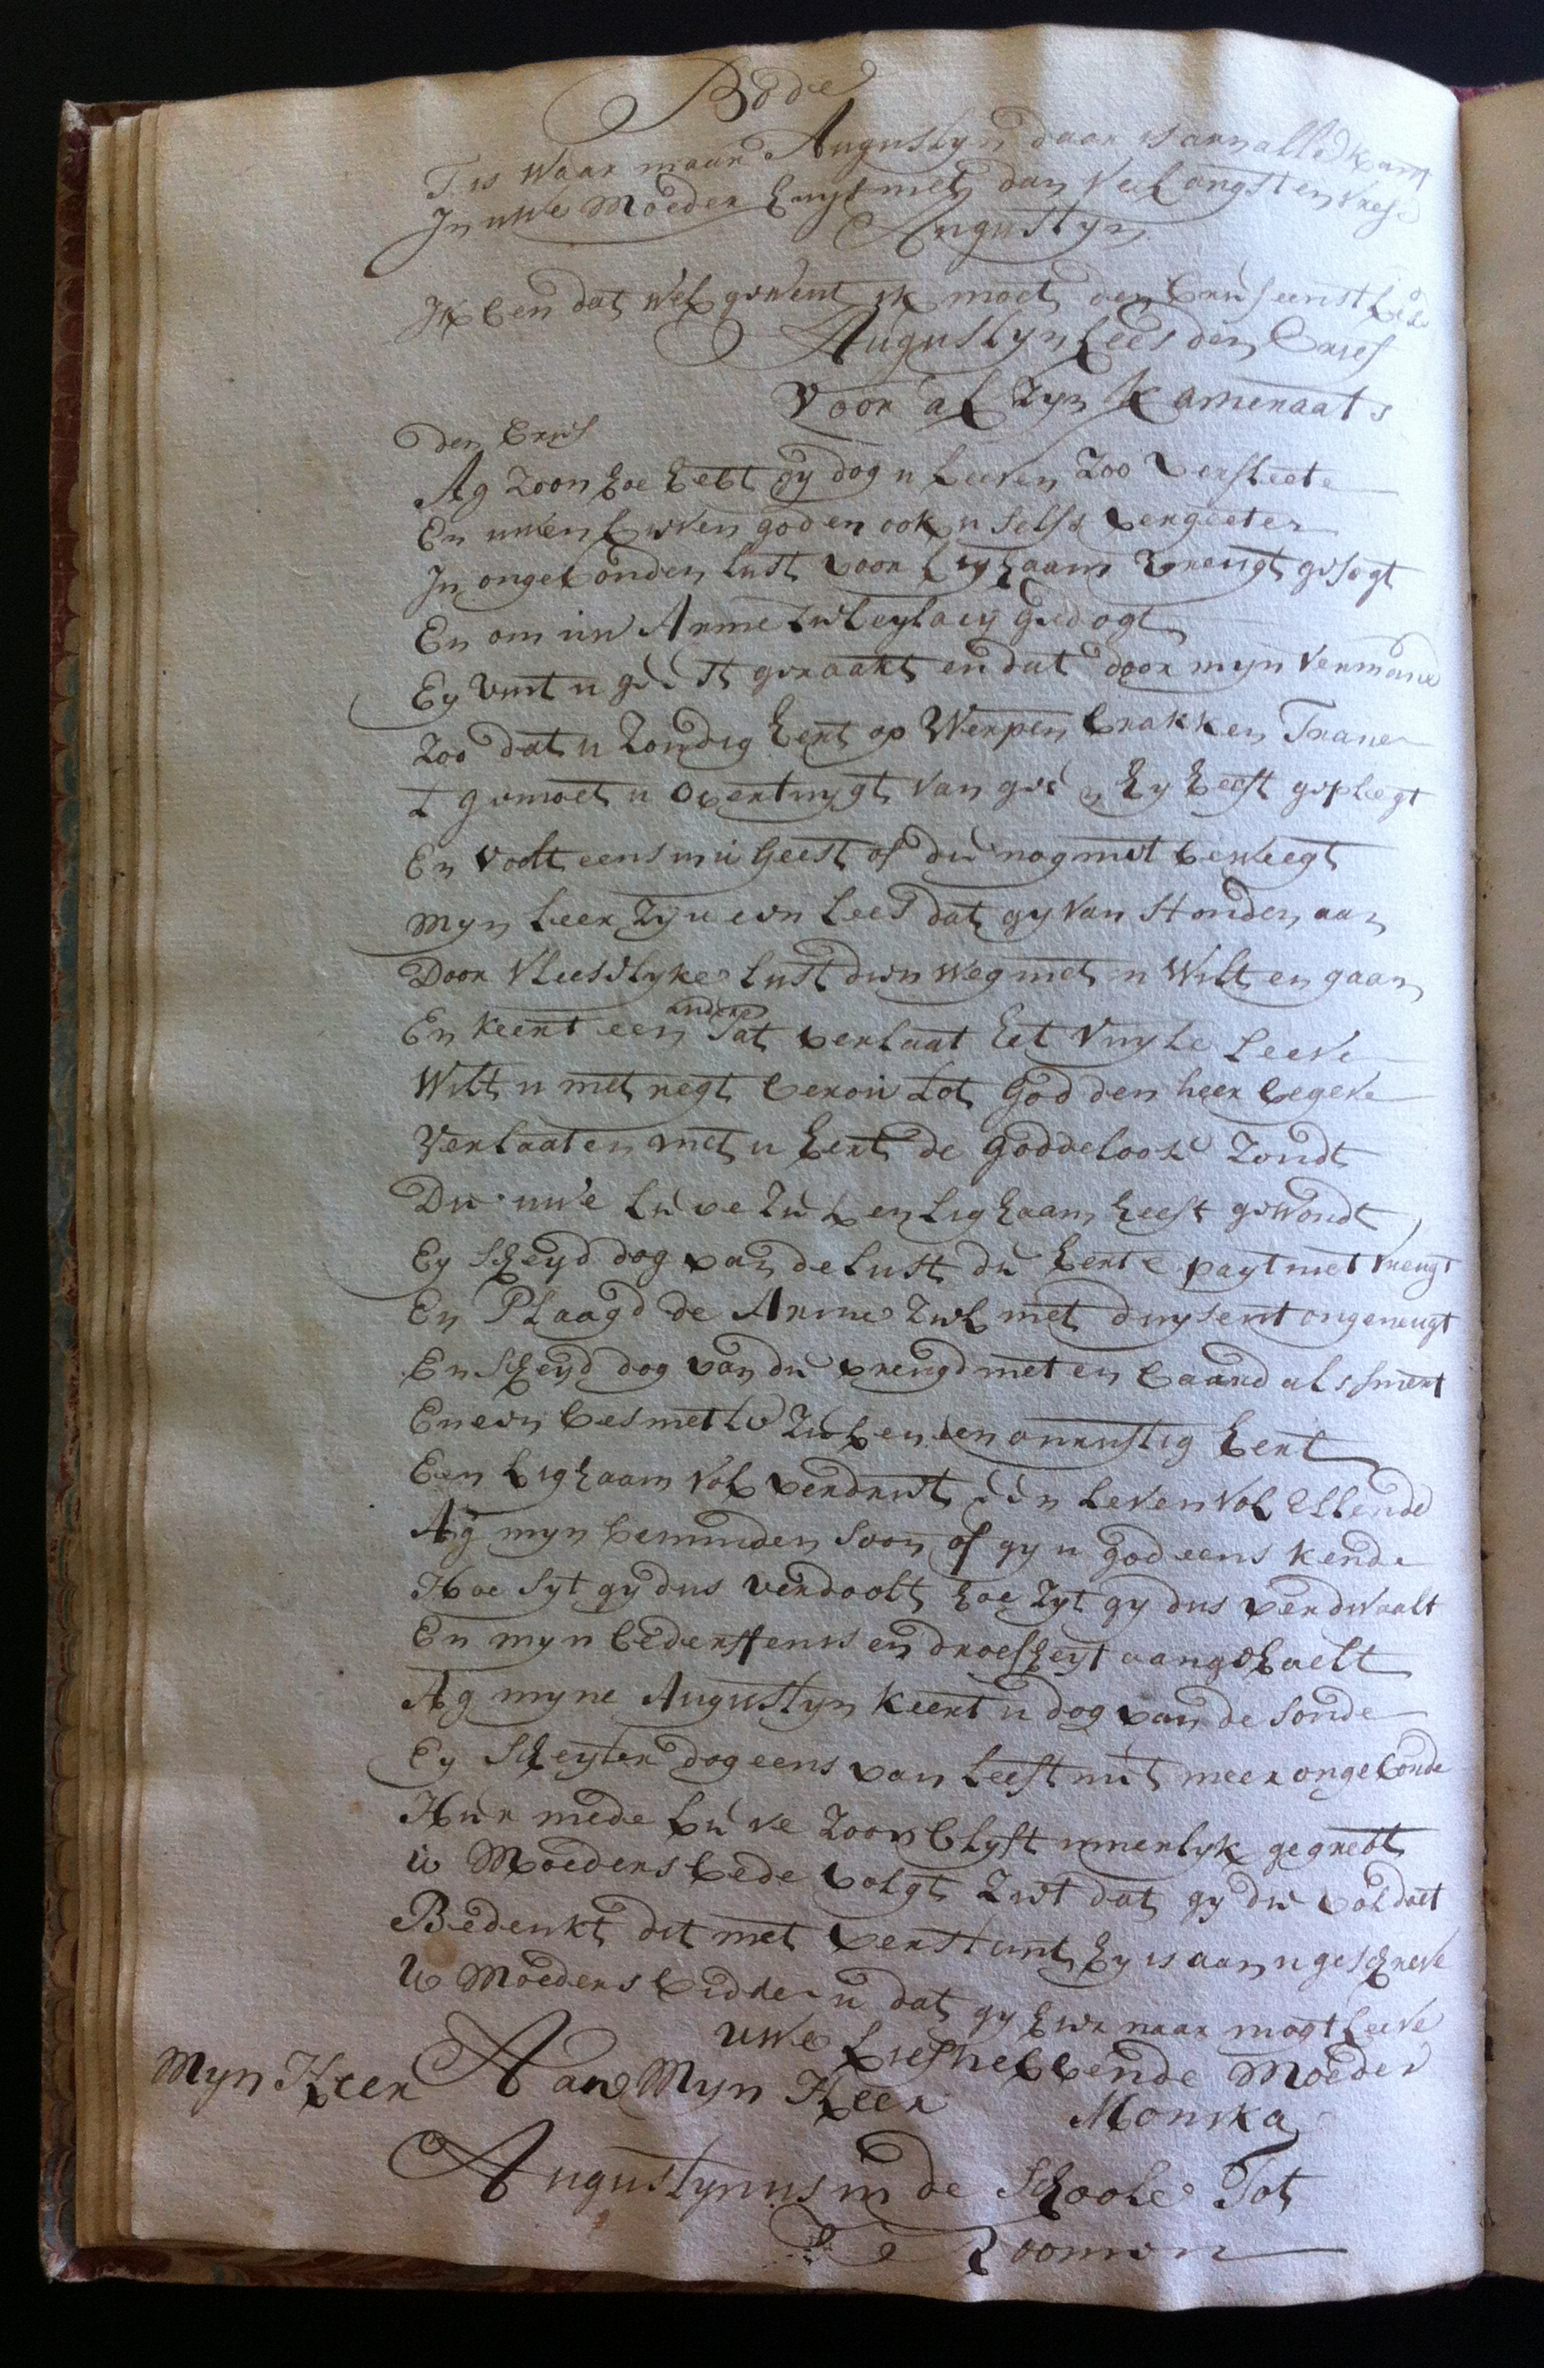 Bode
T is waar maar Augustyn daar is aan alle kant
In uwe Moeder huys niet dan veel angst en vrese
Augustyn
Ik ben dat wel gewent ik moet den brief eenst
Augustyn Lees den brief
Voor al zyn Kameraats
den brief
Ag zoon hoe hebt gy dog u leeven zoo versleete
En uwen liven god en ook u selfs vergeeten
In ongebonden lust voor lighaams vreugt gesogt
En om uw Arme ziel eylacy gedogt
Ey vint u geest geraakt en dat door myn vermane
Zoo dat u zondig hert op werpen brakken Trane
T gemoet u overtuygt van gee hy heeft gepleegt
En voelt eens uwe Geest of die nog niet beweegt
Myn leer zy u een Lees dat gy van stonden aan
Door Vleeslyke lust dien weg niet u wilt en gaan
En keert een andere Pat verlaat het vuyle leeve
Wilt u met regt berou tot God den heer begeve
Verlaat en met u hert de Goddeloose Zondt
Die uwe lieve ziel en lighaam heeft gewondt
Ey scheyd dog van de lust die herte payt met vreugt
En Plaagd de Arme ziel met duysent ongeneugt
En scheyd dog van die vreugd niet en baard als smert
En een besmette ziel en een onrustig hert
Een lighaam vol verdriet een leven vol Ellende
Ag myn beminden soon of gy u god eens kende
Hoe syt gy dus verdoolt hoe zyt gy dus verdwaalt
En myn bederffenis en droefheyt aangehaelt
Ag myne Augustyn keert u dog van de sonde
Ey scheyter dog eens van leeft niet meer ongebonde
Hier mede lieve zoon blyft innerlyk gegroet
U Moeders bede volgt ziet dat gy die voldoet
Bedenkt dit met verstant hy is aan u geschreve
U Moeders bidden u dat gy hier naar mogt leeve
uwe liefhebbende Moeder
Myn Heer Aan Myn Heer Monika
Augustynus in de schoole Tot
Roomen